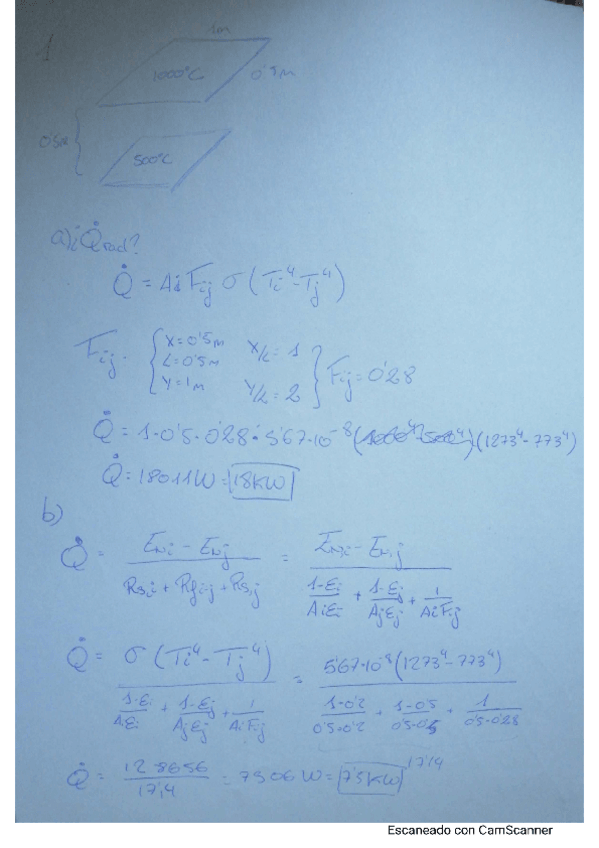 1
1m
1000ºC
0'5m
0'5m
500ºC
a) ¿Q̇rad?
Q̇ = Ai Fij σ (Ti⁴ - Tj⁴)
Fij. { X = 0'5m X/L = 1
L = 0'5m
Y = 1m Y/L = 2 } Fij = 0'28
Q̇ = 1·0'5·0'28·5'67·10⁻⁸ (1273⁴ - 773⁴)
Q̇ = 18011W = 18KW
b)
Q̇ = (Eni - Enj) / (Rs,i + Rfi-j + Rs,j) = (Eni - Enj) / ((1-Ei)/(AiEi) + (1-Ej)/(AjEj) + 1/(AiFij))
Q̇ = σ (Ti⁴ - Tj⁴) / ((1-Ei)/(AiEi) + (1-Ej)/(AjEj) + 1/(AiFij)) = 5'67·10⁻⁸ (1273⁴ - 773⁴) / ((1-0'2)/(0'5·0'2) + (1-0'5)/(0'5·0'5) + 1/(0'5·0'28))
17'14
Q̇ = 128656 / 17'14 = 7506 W = 7'5KW
Escaneado con CamScanner